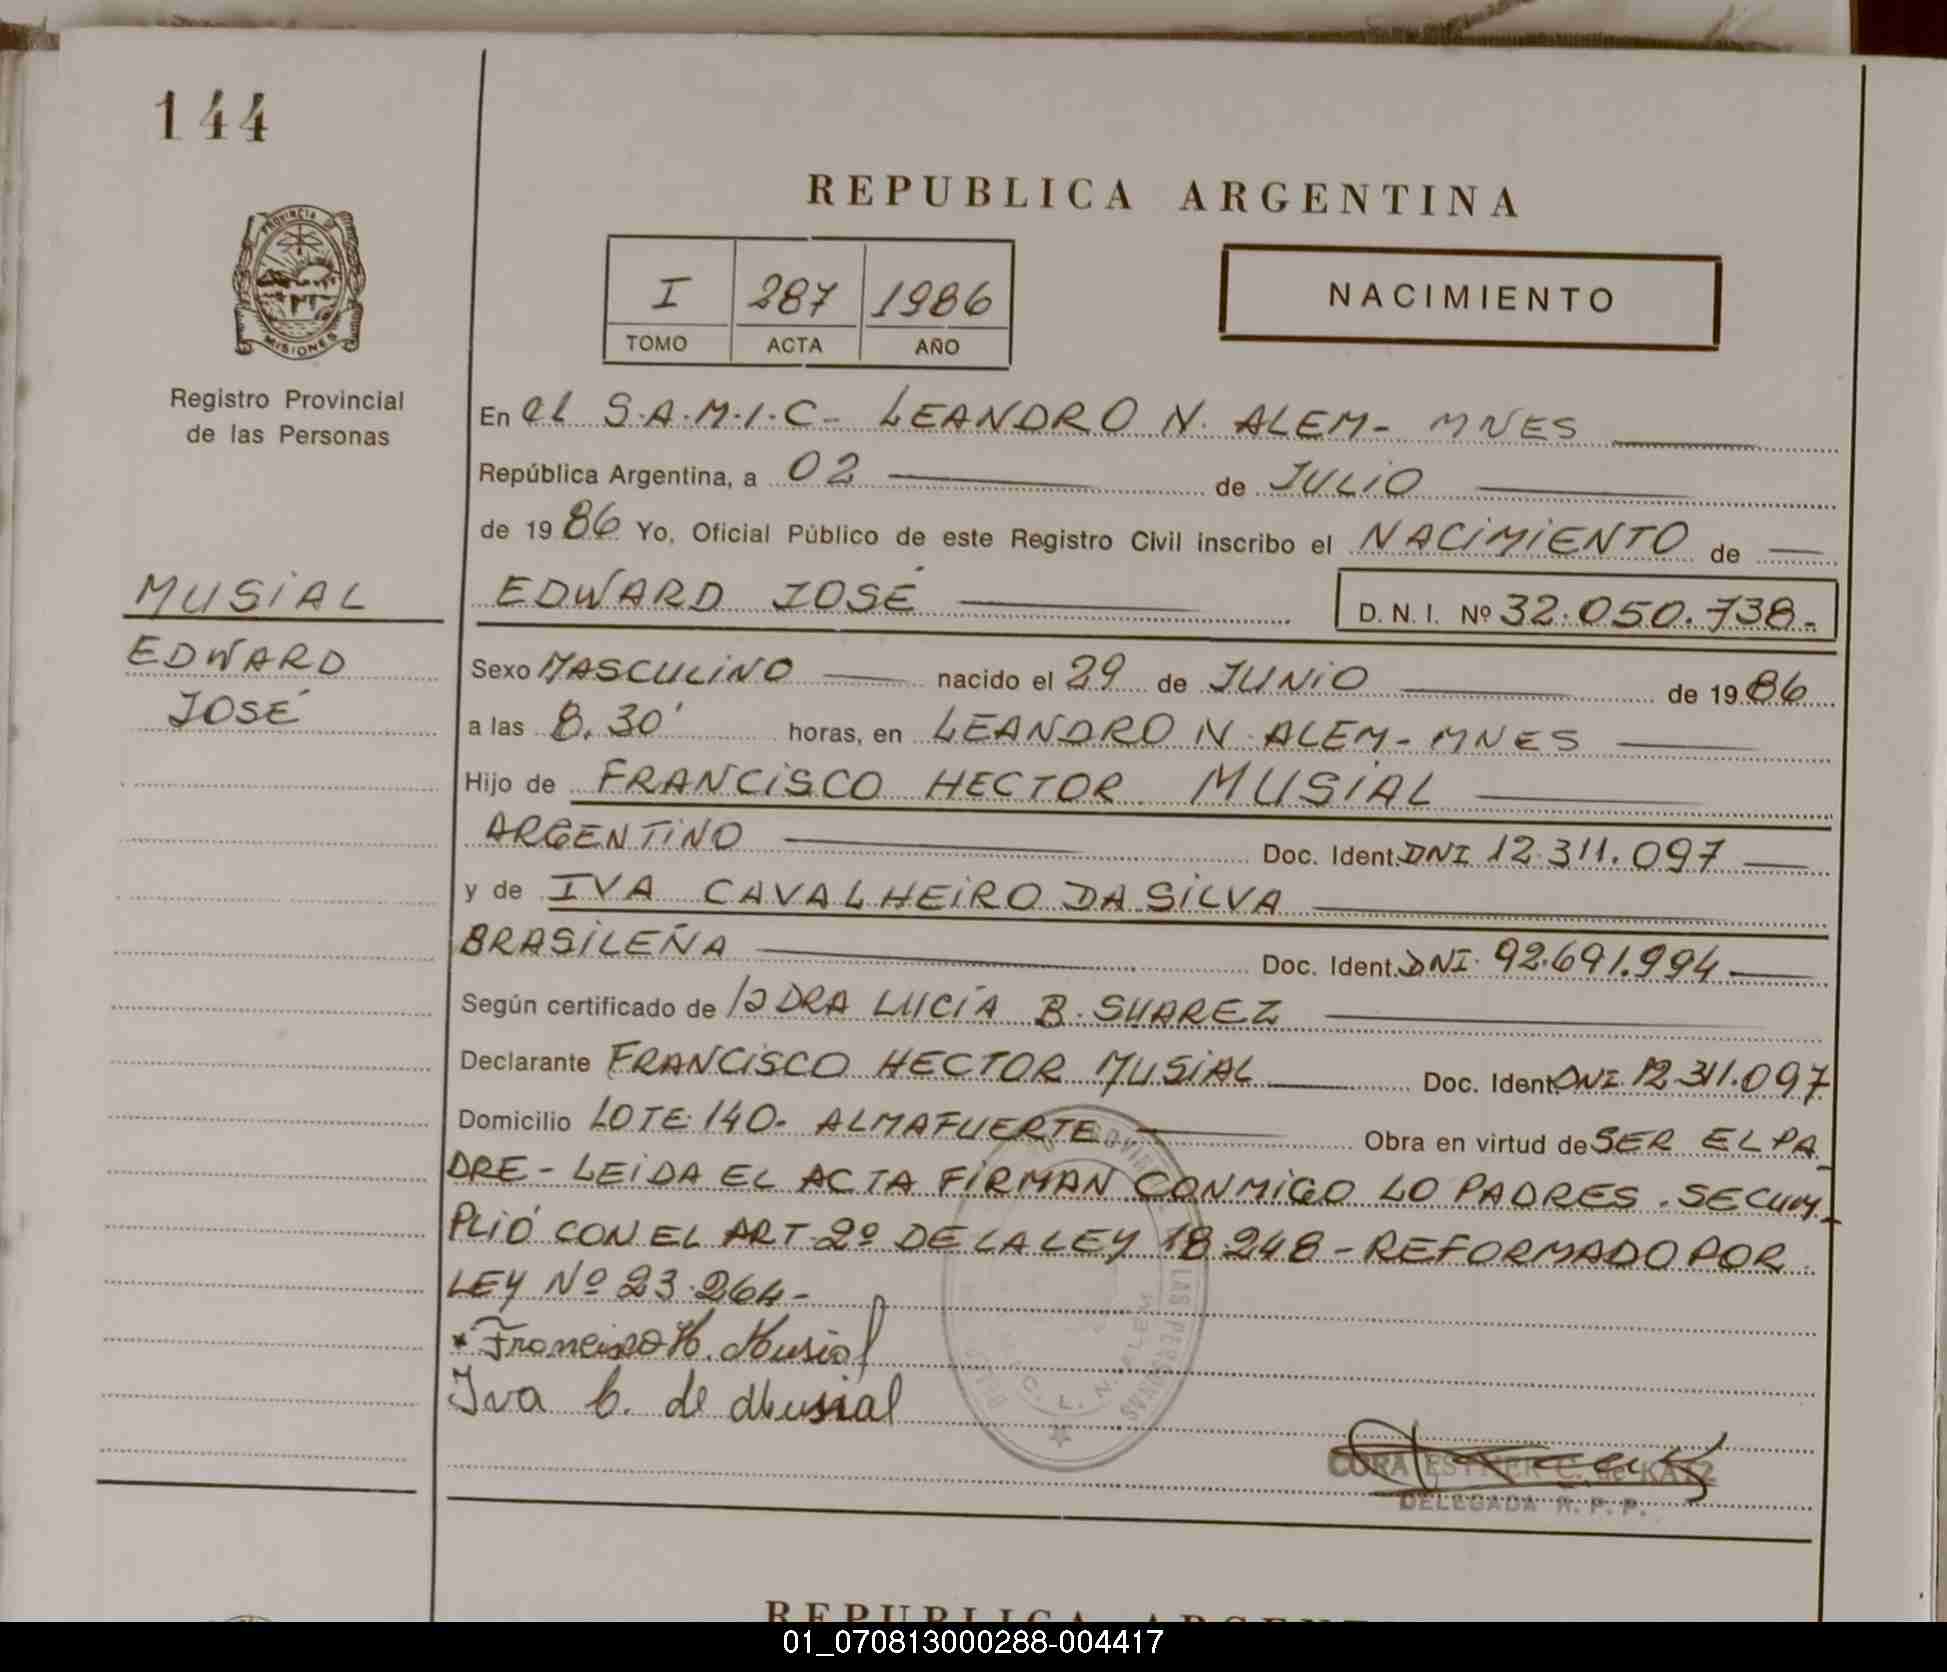 144
REPUBLICA ARGENTINA
PROVINCIA DE
MISIONES
I 287 1986
TOMO ACTA AÑO
NACIMIENTO
Registro Provincial
de las Personas
En el S.A.M.I.C- LEANDRO N. ALEM- MNES
República Argentina, a 02 de JULIO
de 1986 Yo, Oficial Público de este Registro Civil inscribo el NACIMIENTO de
MUSIAL
EDWARD
JOSÉ
EDWARD JOSÉ D. N. I. Nº 32.050.738.-
Sexo MASCULINO nacido el 29 de JUNIO de 1986
a las 8.30' horas, en LEANDRO N. ALEM- MNES
Hijo de FRANCISCO HECTOR MUSIAL
ARGENTINO Doc. Ident. DNI 12.311.097
y de IVA CAVALHEIRO DA SILVA
BRASILEÑA Doc. Ident. DNI. 92.691.994
Según certificado de la DRA LUCÍA B. SUAREZ
Declarante FRANCISCO HECTOR MUSIAL Doc. Ident. DNI. 12.311.097
Domicilio LOTE 140- ALMAFUERTE Obra en virtud de SER EL PA_
DRE - LEIDA EL ACTA FIRMAN CONMIGO LO PADRES. SE CUM_
PLIÓ CON EL ART-2º DE LA LEY 18.248 - REFORMADO POR
LEY Nº 23.264-
Francisco H. Musial
Iva C. de Musial
LAS PERSONAS
L. N. ALEM
CORA ESTHER C. de KATZ
DELEGADA R. P. P.
REPUBLICA ARGENT
01_070813000288-004417